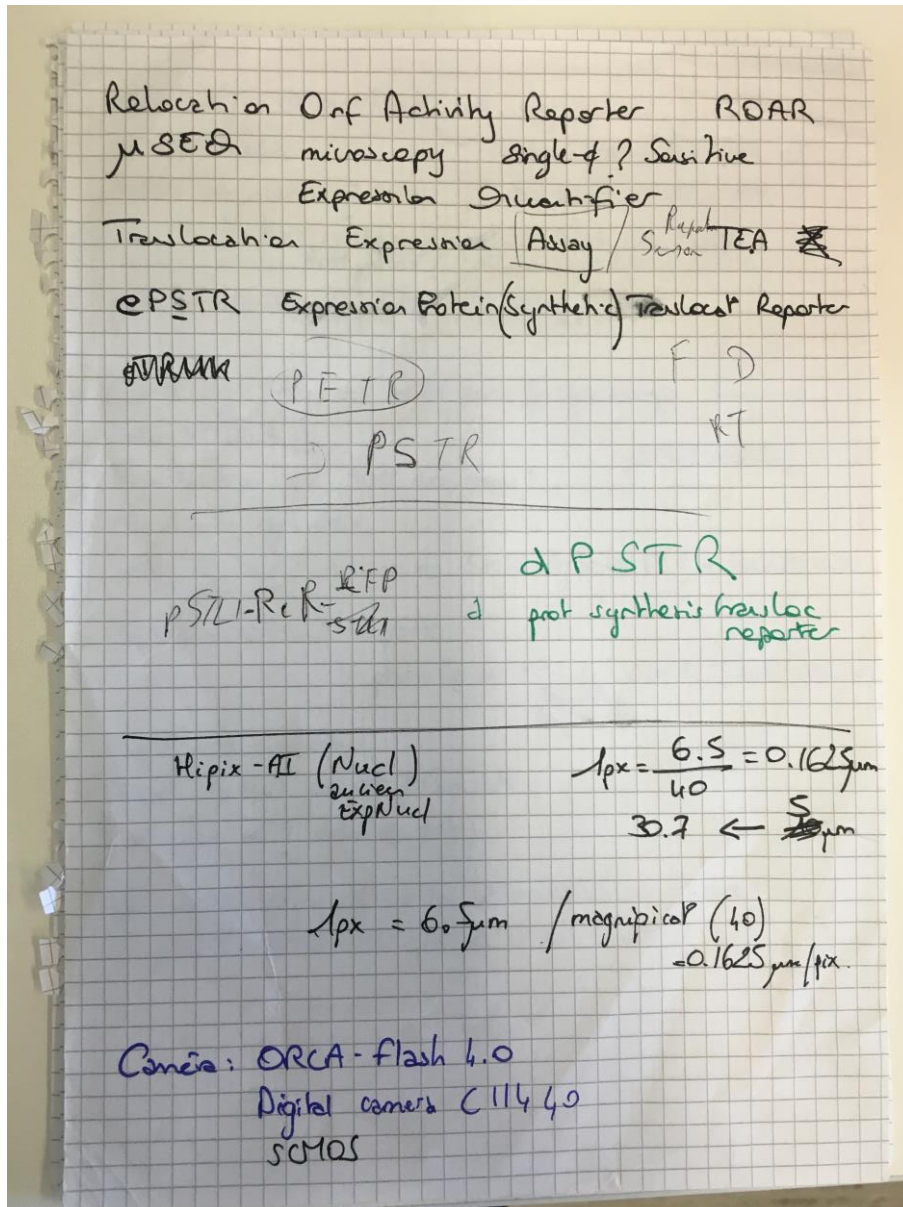 Relocation Orf Activity Reporter ROAR
µSEQ microscopy single-¢ ? Sensitive
Expression Quantifier
Translocation Expression Assay / Reporter Sensor TEA
ePSTR Expression Protein (Synthetic) Translocat° Reporter
PETR F D
PSTR RT
dPSTR
pSTL1-ReR-RFP
d prot synthesis transloc
reporter
Hipix-AI (Nucl) 1px = 6.5/40 = 0.1625µm
ancien
ExpNucl
30.7 ← 5 µm
1px = 6.5µm / magnificat° (40)
=0.1625 µm/pix.
Caméra: ORCA-flash 4.0
Digital camera C11440
sCMOS